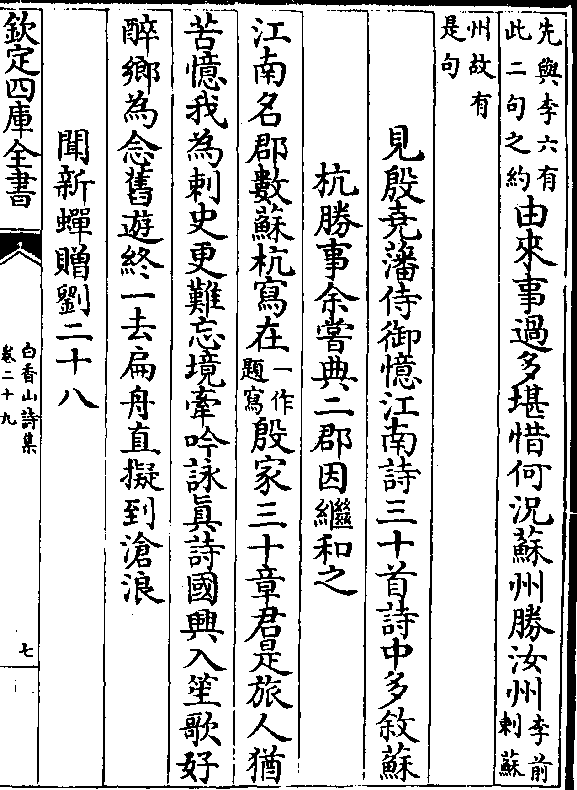 先與李六有此二句之約由來事過多堪惜何況蘇州勝汝州李前刺蘇
州故有是句
見殷堯藩侍御憶江南詩三十首詩中多敘蘇
杭勝事余嘗典二郡因繼和之
江南名郡數蘇杭寫在一作題寫殷家三十章君是旅人猶
苦憶我為刺史更難忘境牽吟詠眞詩國興入笙歌好
醉鄉為念舊遊終一去扁舟直擬到滄浪
聞新蟬贈劉二十八
欽定四庫全書
白香山詩集
卷二十九
七